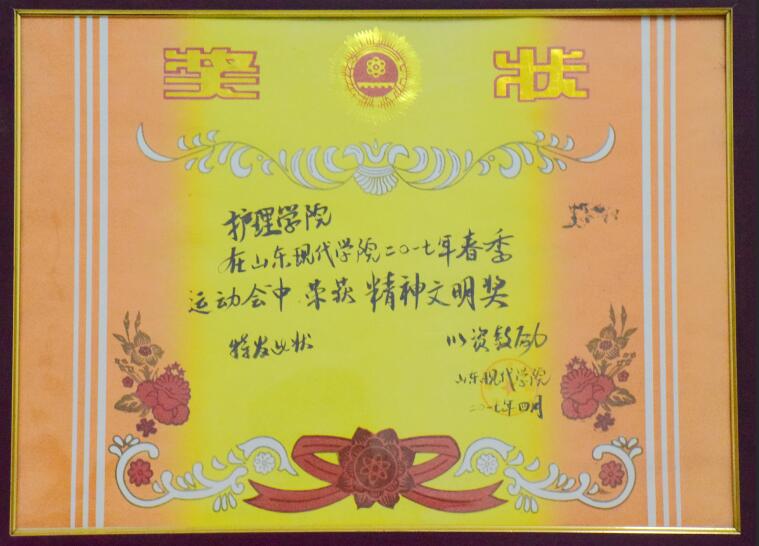 奖状
护理学院
在山东现代学院二〇一七年春季
运动会中 荣获 精神文明奖
特发此状 以资鼓励
山东现代学院
二〇一七年四月